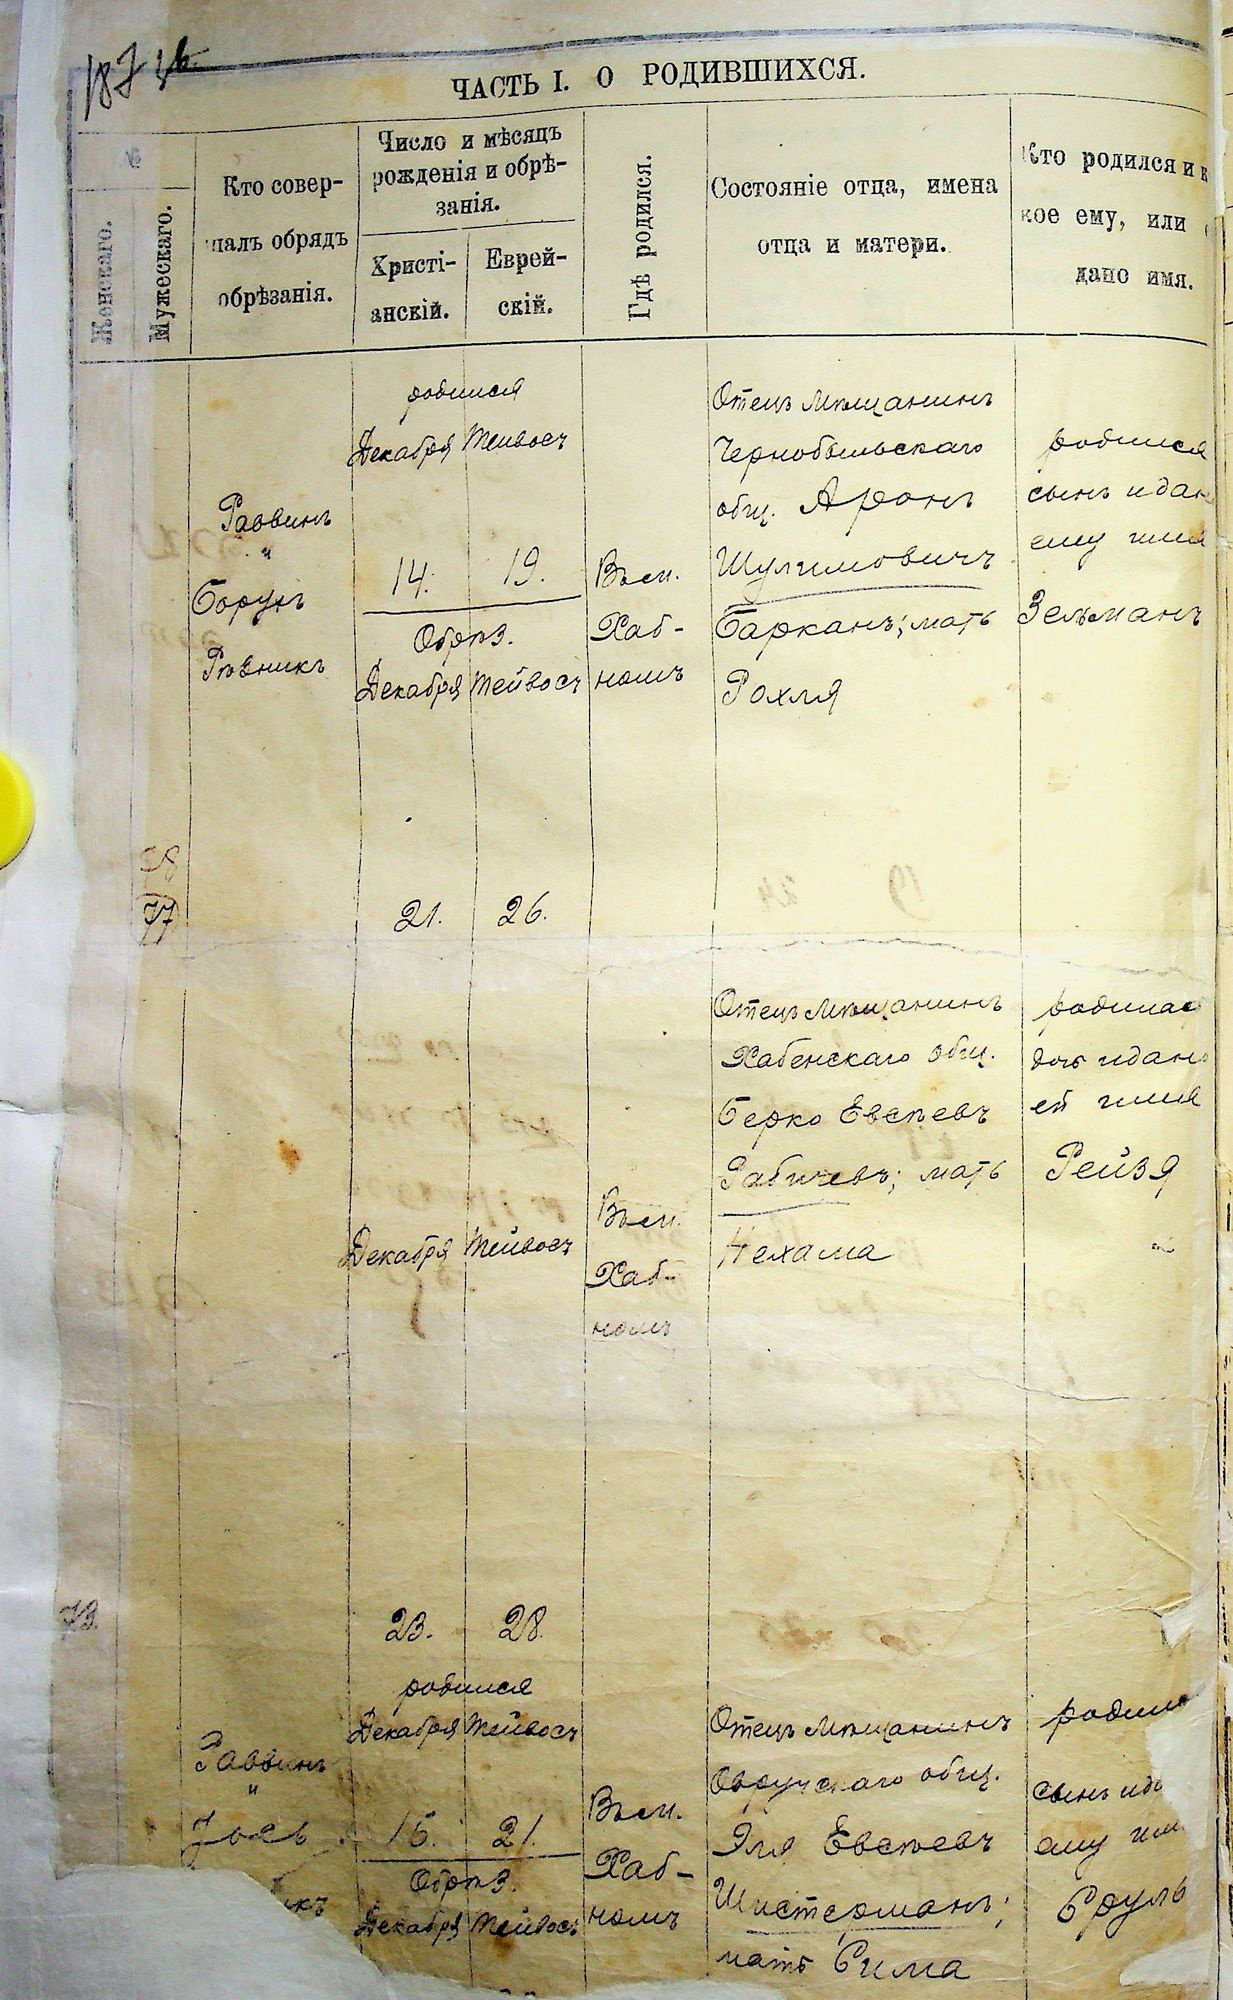 187 об.
ЧАСТЬ I. О РОДИВШИХСЯ.
№
Женскаго.
Мужескаго.
Кто совер-
шалъ обрядъ
обрѣзанія.
Число и мѣсяцъ
рожденія и обрѣ-
занія.
Христі-
анскій.
Еврей-
скій.
Гдѣ родился.
Состояніе отца, имена
отца и матери.
Кто родился и к
кое ему, или
дано имя.
77
Раввинъ
"
Борухъ
Рѣвникъ
родился
Декабря Тейвосъ
14. 19.
Обрѣз.
Декабря Тейвосъ
21. 26.
Въ м.
Хаб-
номъ
Отецъ мѣщанинъ
Чернобыльскаго
общ. Аронъ
Шулимовичъ
Барканъ; мать
Рохля
родился
сынъ и дан
ему имя
Зельманъ
73.
Декабря Тейвосъ
23. 28.
Въ м.
Хаб-
номъ
Отецъ мѣщанинъ
Хабенскаго общ.
Берко Евсѣевъ
Рабичевъ; мать
Нехама
родилас
дочь и дано
ей имя
Рейзя
Раввинъ
"
Іось
икъ
родился
Декабря Тейвосъ
15. 21.
Обрѣз.
Декабря Тейвосъ
Въ м.
Хаб-
номъ
Отецъ мѣщанинъ
Овручскаго общ.
Эля Евсѣевъ
Шистерманъ;
мать Сима
родилс
сынъ и д
ему им
Сруль